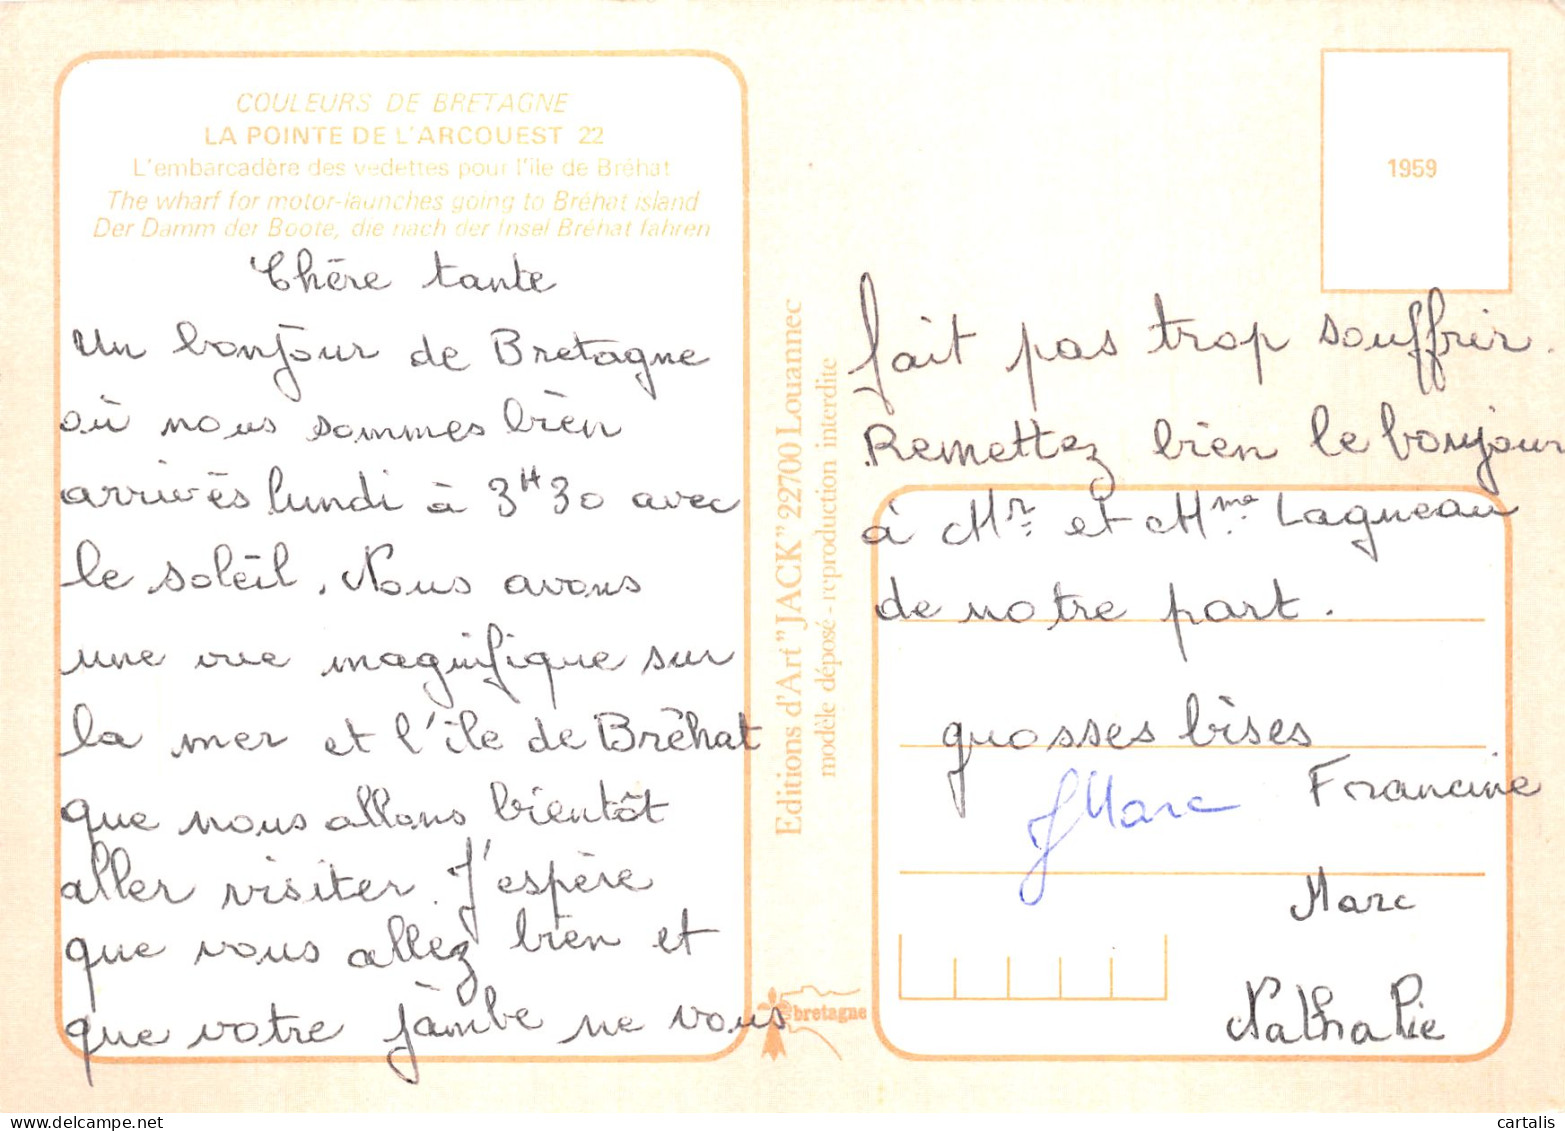 COULEURS DE BRETAGNE
LA POINTE DE L'ARCOUEST 22
L'embarcadère des vedettes pour l'île de Bréhat
The wharf for motor-launches going to Bréhat island
Der Damm der Boote, die nach der Insel Bréhat fahren
Chère tante
Un bonjour de Bretagne
où nous sommes bien
arrivés lundi à 3H30 avec
le soleil. Nous avons
une vue magnifique sur
la mer et l'île de Bréhat
que nous allons bientôt
aller visiter. J'espère
que vous allez bien et
que votre jambe ne vous
Editions d'Art "JACK" 22700 Louannec
modèle déposé - reproduction interdite
bretagne
1959
fait pas trop souffrir.
Remettez bien le bonjour
à Mr. et Mme. Lagneau
de notre part.
grosses bises
JMarc Francine
Marc
Nathalie
cartalis